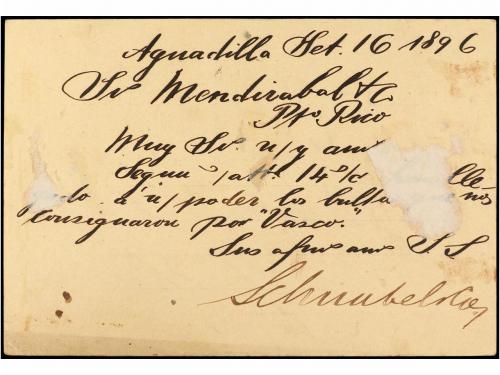 Aguadilla Set. 16 1896
Sr Mendizabal & Co
Pto. Rico
Muy Sr n/y amo
Segun s/atta 14 o/c lle-
gado á n/poder los bultos nos
consignaron por "Vasco."
Sus afmos amos S.S
Schnabel & Co